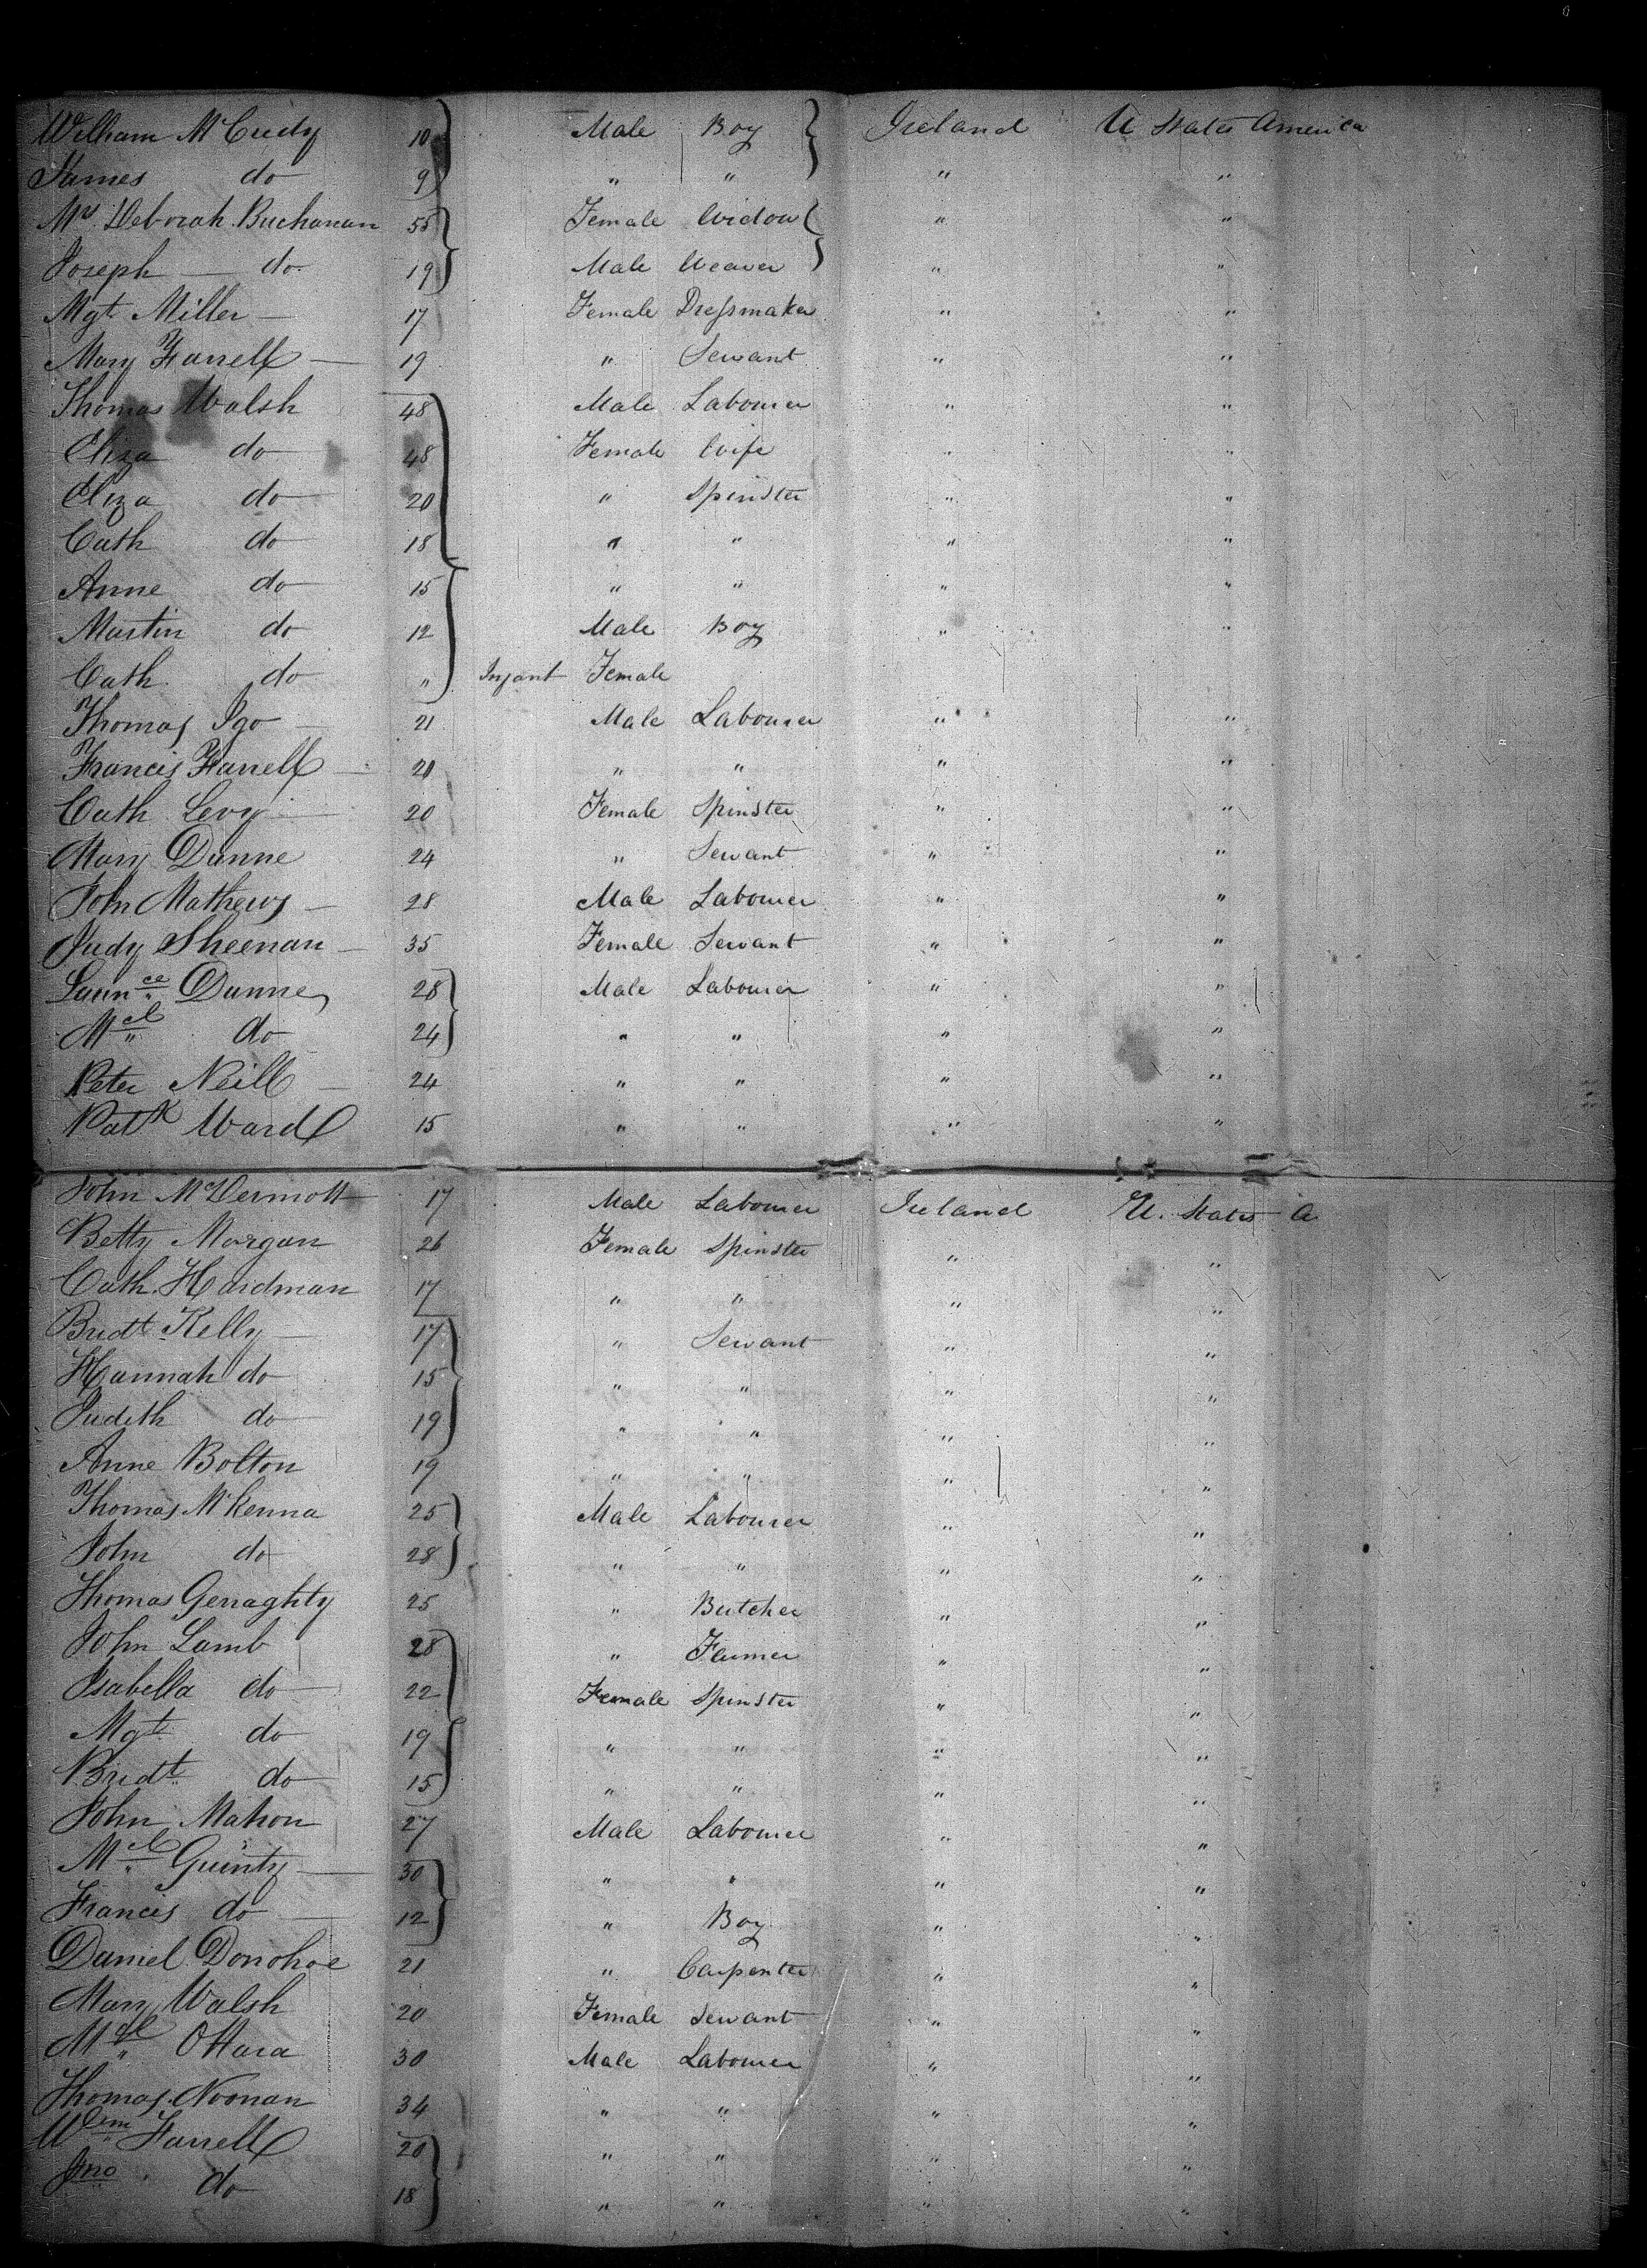 William McCudy 10 Male Boy Ireland U States America
James do 9 " " " "
Mrs Deborah Buchanan 55 Female Widow " "
Joseph do. 19 Male Weaver " "
Mgt Miller 17 Female Dressmaker " "
Mary Farrell 19 " Servant " "
Thomas Walsh 48 Male Labourer " "
Eliza do 48 Female Wife " "
Eliza do 20 " Spinster " "
Cath do 18 " " " "
Anne do 15 " " " "
Martin do 12 Male Boy " "
Cath. do " Infant Female
Thomas Igo 21 Male Labourer " "
Francis Farrell 20 " " " "
Cath Levy 20 Female Spinster " "
Mary Dunne 24 " Servant " "
John Mathews 28 Male Labourer " "
Judy Sheenan 35 Female Servant " "
Launce Dunne 28 Male Labourer " "
Mcl do 24 " " " "
Peter Neill 24 " " " "
Patk Ward 15 " " " "
John McDermott 17 Male Labourer Ireland U. States A
Betty Morgan 26 Female Spinster " "
Cath. Hardman 17 " " " "
Bridt Kelly 17 " Servant " "
Hannah do 15 " " " "
Judith do 19 " " " "
Anne Bolton 19 " " " "
Thomas McKenna 25 Male Labourer " "
John do 28 " " " "
Thomas Geraghty 25 " Butcher " "
John Lamb 28 " Farmer " "
Isabella do 22 Female Spinster " "
Mgt do 19 " " " "
Bridt do 15 " " " "
John Mahon 27 Male Labourer " "
Mcl Guinty 30 " " " "
Francis do 12 " Boy " "
Daniel Donohoe 21 " Carpenter " "
Mary Walsh 20 Female Servant " "
Mcl OHara 30 Male Labourer " "
Thomas Noonan 34 " " " "
Willm Farrell 20 " " " "
Jno do 18 " " " "